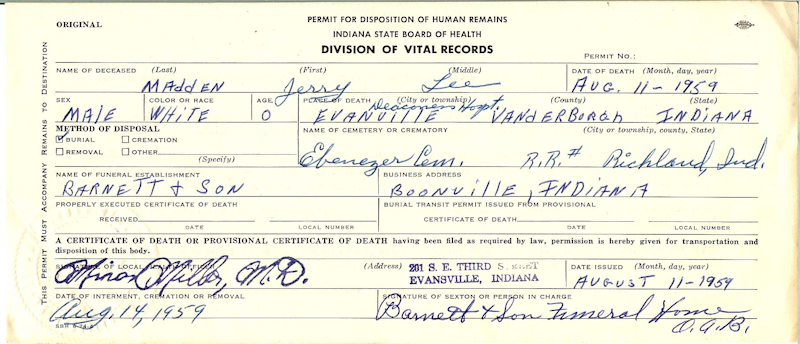 ORIGINAL
PERMIT FOR DISPOSITION OF HUMAN REMAINS
INDIANA STATE BOARD OF HEALTH
DIVISION OF VITAL RECORDS
PERMIT NO.:
THIS PERMIT MUST ACCOMPANY REMAINS TO DESTINATION
NAME OF DECEASED (Last) (First) (Middle) DATE OF DEATH (Month, day, year)
MAdden Jerry Lee AUG. 11-1959
SEX COLOR OR RACE AGE PLACE OF DEATH (City or township) (County) (State)
Deaconess Hospt.
MALE WHITE 0 EVANVILLE VANDERBORGH INDIANA
METHOD OF DISPOSAL NAME OF CEMETERY OR CREMATORY (City or township, county, State)
BURIAL CREMATION
REMOVAL OTHER
(Specify)
Ebenezer Cem. R.R.# Richland, Ind.
NAME OF FUNERAL ESTABLISHMENT BUSINESS ADDRESS
BARNETT & SON BOONVILLE, INDIANA
PROPERLY EXECUTED CERTIFICATE OF DEATH BURIAL TRANSIT PERMIT ISSUED FROM PROVISIONAL
RECEIVED CERTIFICATE OF DEATH
DATE LOCAL NUMBER DATE LOCAL NUMBER
A CERTIFICATE OF DEATH OR PROVISIONAL CERTIFICATE OF DEATH having been filed as required by law, permission is hereby given for transportation and
disposition of this body.
SIGNATURE OF LOCAL HEALTH OFFICER (Address) 201 S. E. THIRD STREET DATE ISSUED (Month, day, year)
Miller, M.D. EVANSVILLE, INDIANA AUGUST 11-1959
DATE OF INTERMENT, CREMATION OR REMOVAL SIGNATURE OF SEXTON OR PERSON IN CHARGE
Aug. 14, 1959 Barnett & Son Funeral Home
O.G.B.